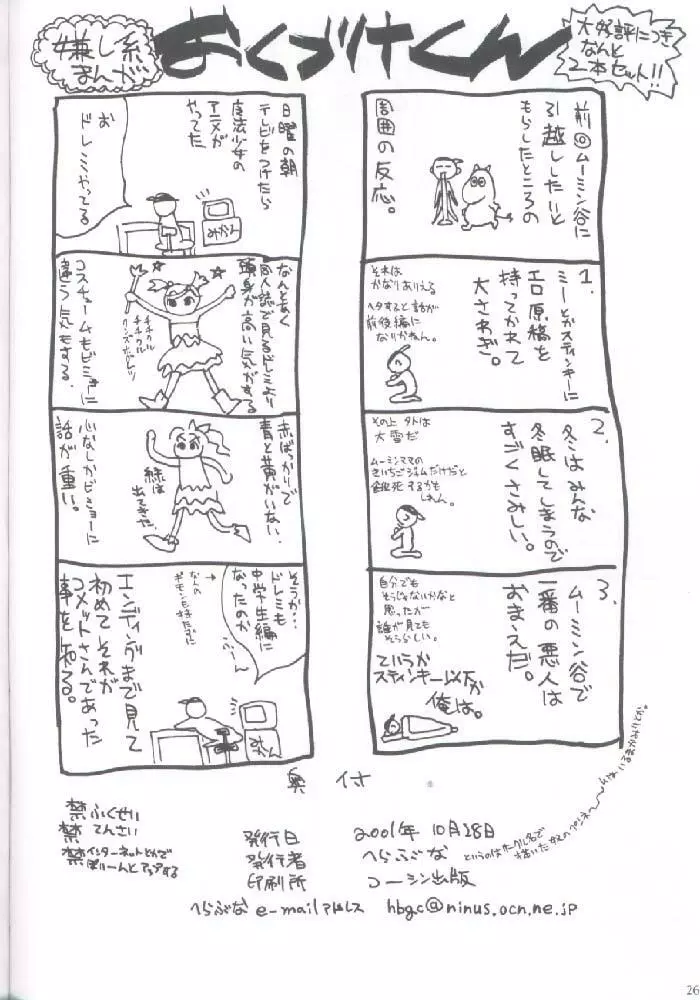 嫌し系
まんが
おくづけくん
大好評につき
なんと
2本セット!!
前回ムーミン谷に
引越ししたいと
もらしたところの
周囲の反応。
1.
ミーとかスティンキーに
エロ原稿を
持ってかれて
大さわぎ。
それは
かなりありえる
ヘタすると話が
前後編に
なりかねん。
2.
冬はみんな
冬眠してしまうので
すごくさみしい。
その上外は
大雪だ
ムーミンママの
きいちごジャムだけだと
餓死するかも
しれん。
3.
ムーミン谷で
一番の悪人は
おまえだ。
自分でも
そうじゃないかなと
思ったが
誰が見ても
そうらしい。
ていうか
スティンキー以下か
俺は。
日曜の朝
テレビをつけたら
魔法少女の
アニメが
やってた
お
ドレミやってる
みかん
なんとなく
同人誌で見るドレミより
頭身が高い気がする
コスチュームもビミョーに
違う気もする。
赤ばっかりで
青と黄がいない。
心なしかビミョーに
話が重い。
緑は
出てきた
そうか…
ドレミも
中学生編に
なったのか
ふーん
なんの
ギモンも持たずに
エンディングまで見て
初めてそれが
コメットさんであった
事を知る。
みかん
奥付
禁ふくせい
禁てんさい
禁インターネットとかで
ばりーんとアップする
発行日 2001年 10月28日
発行者 へらぶな
印刷所 コーシン出版
へらぶな e-mailアドレス hbgc@ninus.ocn.ne.jp
というのはサークル名で
描いた奴のペンネームは
26